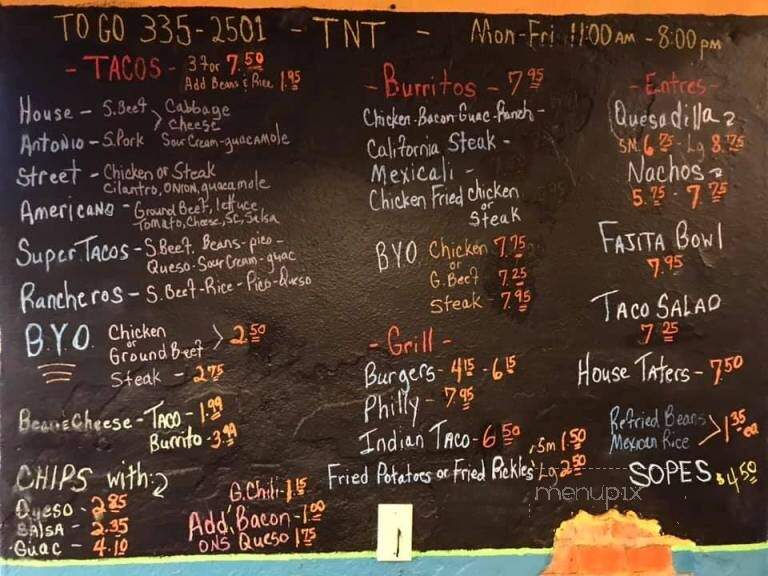 TO GO 335-2501 - TNT - Mon-Fri 11:00 AM - 8:00 pm
- TACOS - 3 for 7.50
Add Beans & Rice 1.95
House - S.Beef > Cabbage
Cheese
Antonio - S.Pork Sour Cream-guacamole
Street - Chicken or Steak
Cilantro, Onion, guacamole
Americano - Ground Beef, lettuce,
Tomato, Cheese, SC, Salsa
Super Tacos - S.Beef, Beans-pico-
Queso-Sour Cream-guac
Rancheros - S.Beef-Rice-Pico-Queso
B.Y.O. Chicken
or > 2.50
Ground Beef
Steak - 2.75
Bean & Cheese - Taco - 1.99
Burrito - 3.99
CHIPS with:
Queso - 2.85
Salsa - 2.35
Guac - 4.10
G.Chili - 1.15
Add Bacon - 1.00
ONS Queso 1.75
- Burritos - 7.95
Chicken-Bacon-Guac-Ranch -
California Steak -
Mexicali -
Chicken Fried Chicken
or
Steak
BYO Chicken 7.75
or
G.Beef 7.25
Steak - 7.95
- Grill -
Burgers - 4.15 - 6.15
Philly - 7.95
Indian Taco - 6.50
Fried Potatoes or Fried Pickles Sm 1.50
Lg 2.50
- Entres -
Quesadilla
SM. 6.75 - Lg 8.75
Nachos
5.75 - 7.75
FAJITA BOWL
7.95
TACO SALAD
7.25
House Taters - 7.50
Refried Beans
Mexican Rice > 1.35 ea
SOPES $4.50
menupix
1